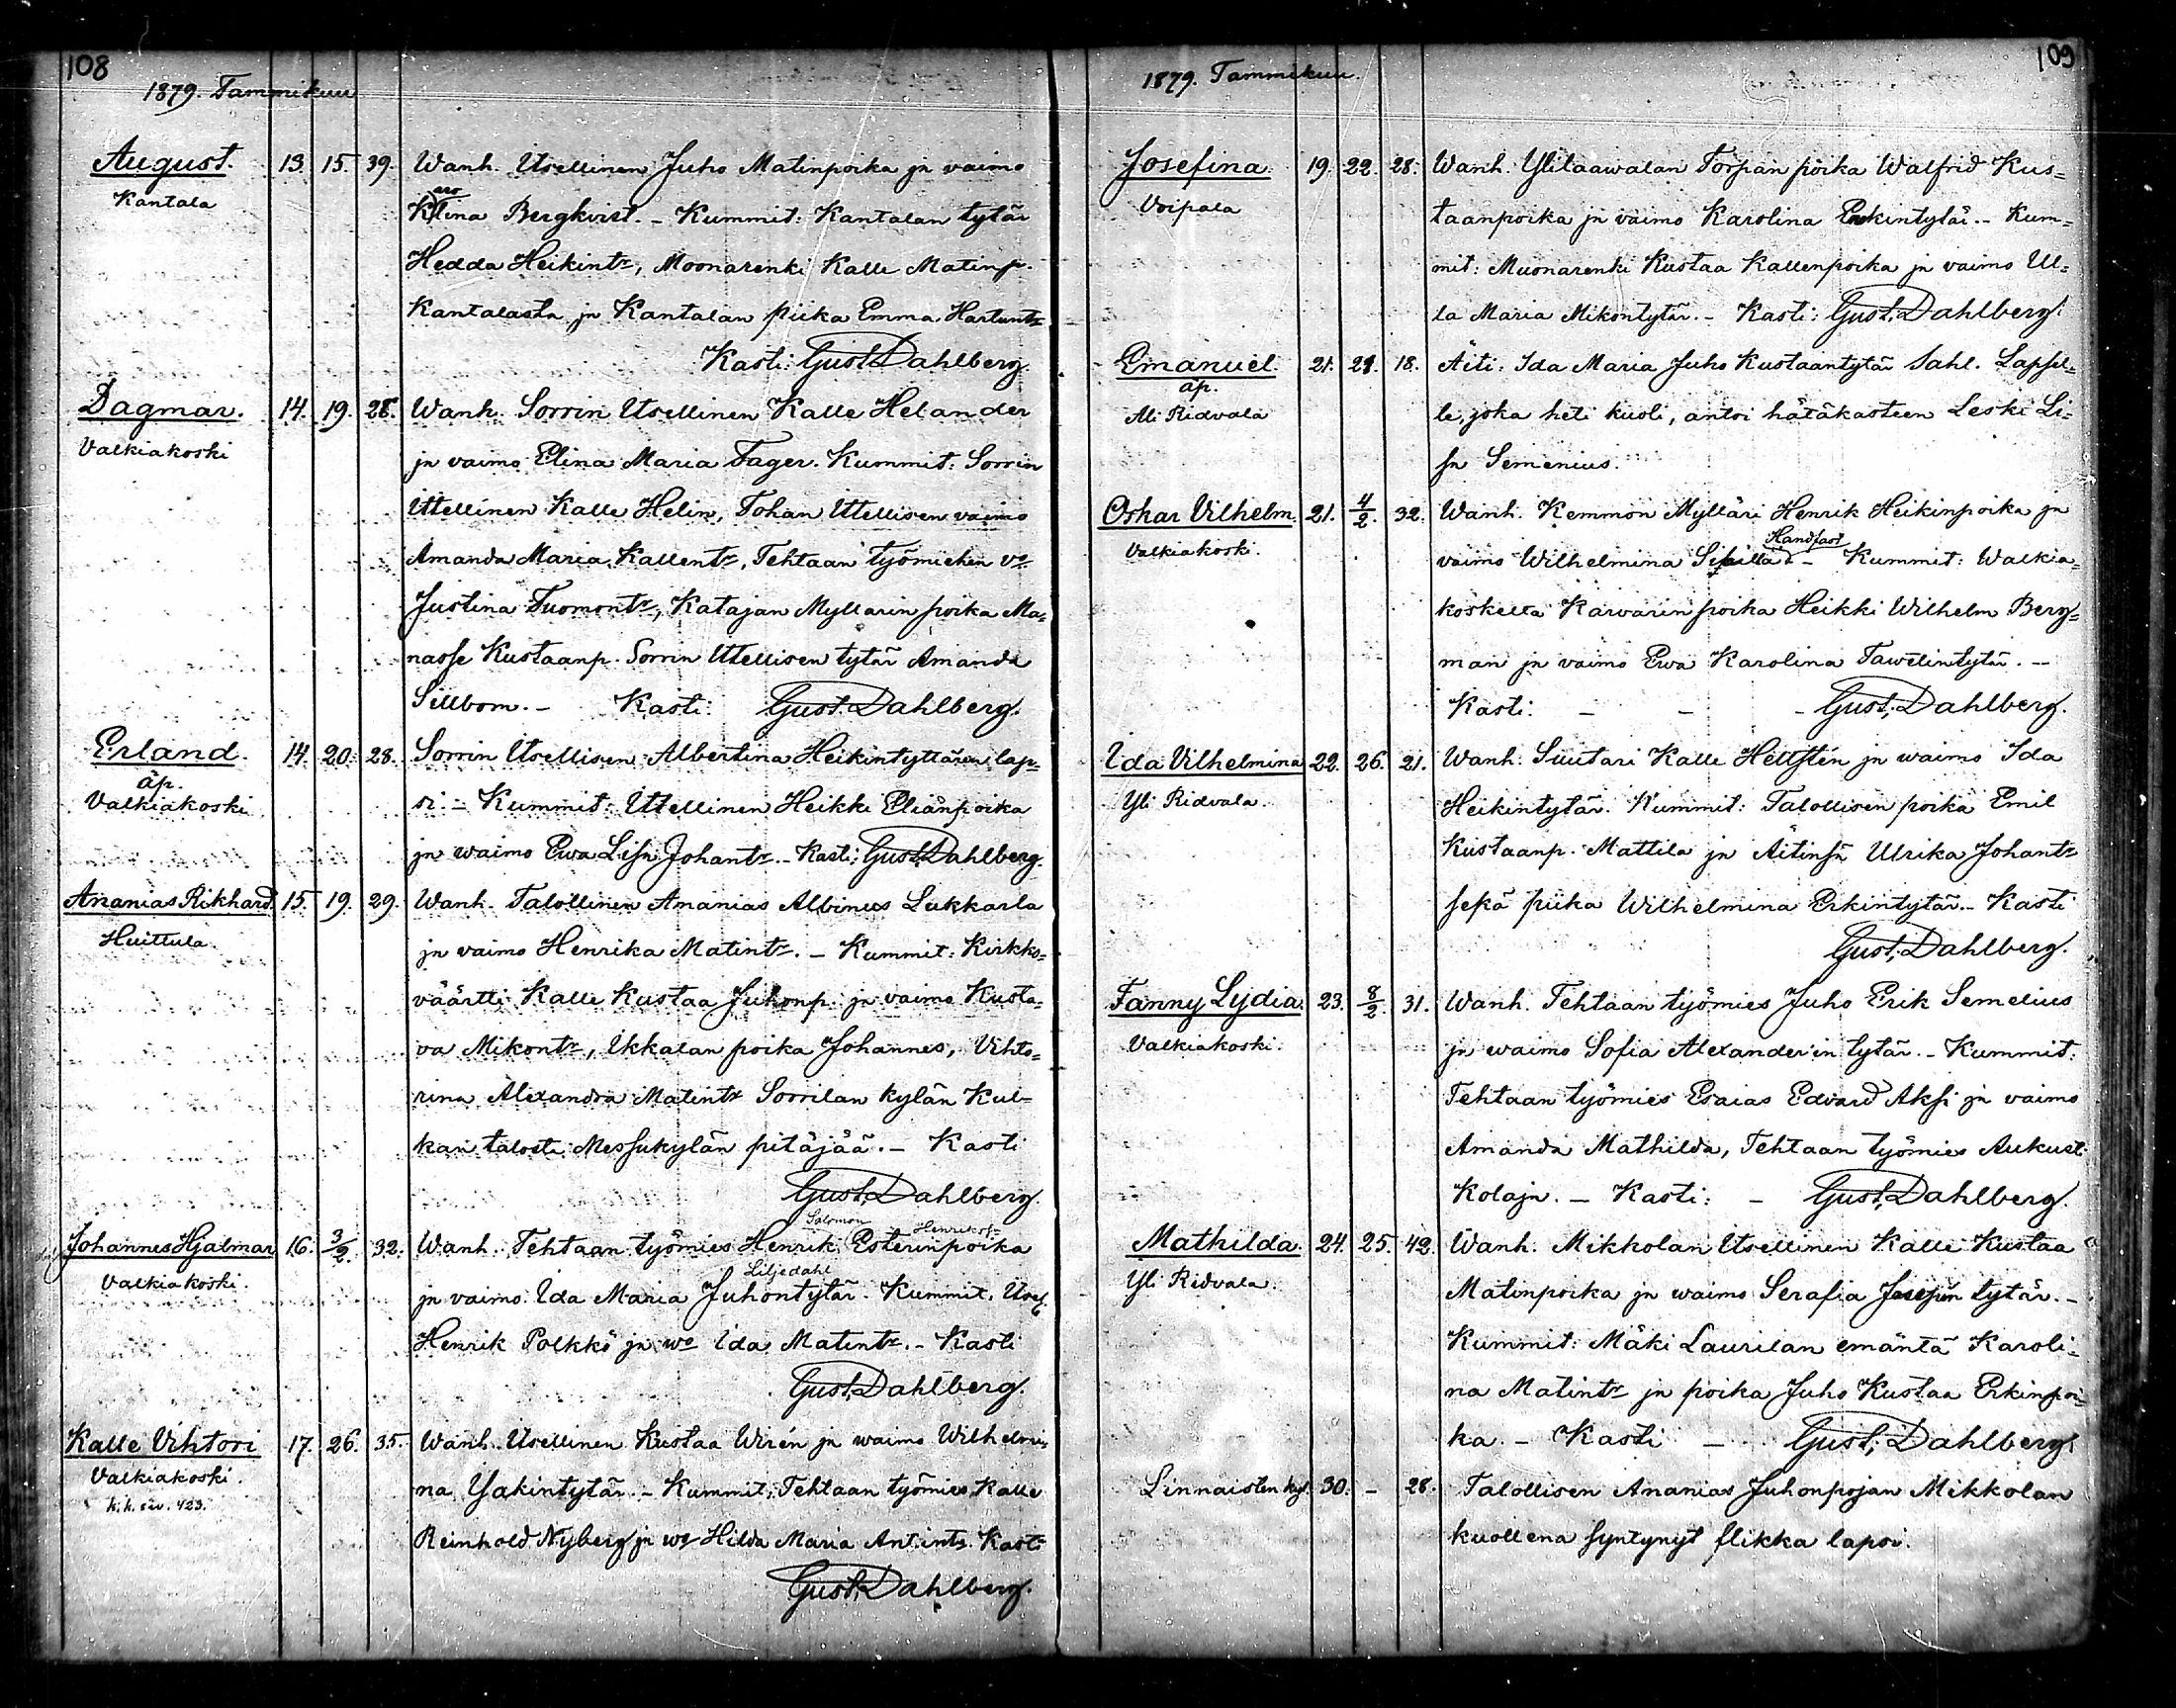 108
1879. Tammikuu
August. 13. 15. 39. Wanh. Itsellinen Juho Matinpoika ja vaimo
Kantala Karolina Bergkvist. - Kummit: Kantalan tytär
Hedda Heikintr, Moonarenki Kalle Matinp.
Kantalasta ja Kantalan piika Emma
Kasti: Gust. Dahlberg.
Dagmar. 14. 19. 28. Wanh. Sorrin Itsellinen Kalle Helander
Valkiakoski ja vaimo Elina Maria Fager. Kummit: Sorrin
Ittellinen Kalle Helin, Tohan Ittellisen vaimo
Amanda Maria Kallentr, Tehtaan työmiehen vo
Justina Tuomontr, Katajan Myllärin poika Ma=
nasse Kustaanp. Sorrin Ittellisen tytär Amanda
Sillbom. - Kasti: Gust. Dahlberg.
Erland. 14. 20. 28. Sorrin Itsellisen Albertina Heikintyttären lap=
äp. si. - Kummit: Ittellinen Heikki Elianpoika
Valkiakoski
ja waimo Ewa Lisa Johantr. - Kasti: Gust. Dahlberg.
Ananias Rikhard. 15. 19. 29. Wanh. Talollinen Ananias Albinus Lukkarla
Huittula. ja vaimo Henrika Matintr. - Kummit: Kirkko=
väärtti Kalle Kustaa Juhonp. ja vaimo Kusta=
va Mikontr, Ikkalan poika Johannes, Vihto=
rina Alexandra Matintr Sorrilan kylän Kul=
kan talosta Messukylän pitäjää. - Kasti
Gust. Dahlberg.
Salomon Henrikss
Johannes Hjalmar 16. 3/2. 32. Wanh. Tehtaan työmies Henrik Esterinpoika
Liljedahl
Valkiakoski. ja vaimo Ida Maria Juhontytär. Kummit. Itsel.
Henrik Polkko ja wo Ida Matintr. - Kasti
Gust. Dahlberg.
Kalle Vihtori 17. 26. 35. Wanh. Itsellinen Kustaa Wirén ja waimo Wilhelmi=
Valkiakoski. na Isakintytär. - Kummit: Tehtaan työmies Kalle
423.
Reinhold Nyberg ja wo Hilda Maria Antintr. Kasti
Gust. Dahlberg.
109
1879. Tammikuu.
Josefina. 19. 22. 28. Wanh. Ylitaawalan Torpan poika Walfrid Kus=
Voipala taanpoika ja vaimo Karolina Erkintytär. - Kum=
mit: Muonarenki Kustaa Kallenpoika ja vaimo Ul=
la Maria Mikontytär. - Kasti: Gust. Dahlberg.
Emanuel. 21. 21. 18. Äiti: Ida Maria Juho Kustaantytär Sahl. Lapsel=
äp.
Ali Ridvala le, joka heti kuoli, antoi hätäkasteen Leski Li=
sa Semenius.
Oskar Vilhelm. 21. 4/2. 32. Wanh. Kemmon Mylläri Henrik Heikinpoika ja
Handfast
Valkiakoski. vaimo Wilhelmina - Kummit: Walkia=
koskelta Karvarin poika Heikki Wilhelm Berg=
man ja vaimo Ewa Karolina Tawetintytär. -
Kasti: - - - Gust. Dahlberg.
Ida Vilhelmina 22. 26. 21. Wanh: Suutari Kalle Hellstén ja waimo Ida
Yli Ridvala. Heikintytär. Kummit: Talollisen poika Emil
Kustaanp. Mattila ja Äitinsä Ulrika Johantr
sekä piika Wilhelmina Erkintytär. - Kasti
Gust. Dahlberg.
Fanny Lydia. 23. 8/2. 31. Wanh. Tehtaan työmies Juho Erik Semelius
Valkiakoski. ja waimo Sofia Alexanderin tytär. - Kummit:
Tehtaan työmies Esaias Edvard Aksi ja vaimo
Amanda Mathilda, Tehtaan työmies Aukusti
Kolaja. - Kasti: - Gust. Dahlberg.
Mathilda. 24. 25. 42. Wanh: Mikkolan Itsellinen Kalle Kustaa
Yli Ridvala. Matinpoika ja waimo Serafia Josefin tytär. -
Kummit: Mäki Laurilan emäntä Karoli=
na Matintr ja poika Juho Kustaa Erkinpoi=
ka. - Kasti - Gust. Dahlberg.
Linnaisten kyl. 30. - 28. Talollisen Ananias Juhonpojan Mikkolan
kuollena syntynyt flikka lapsi.